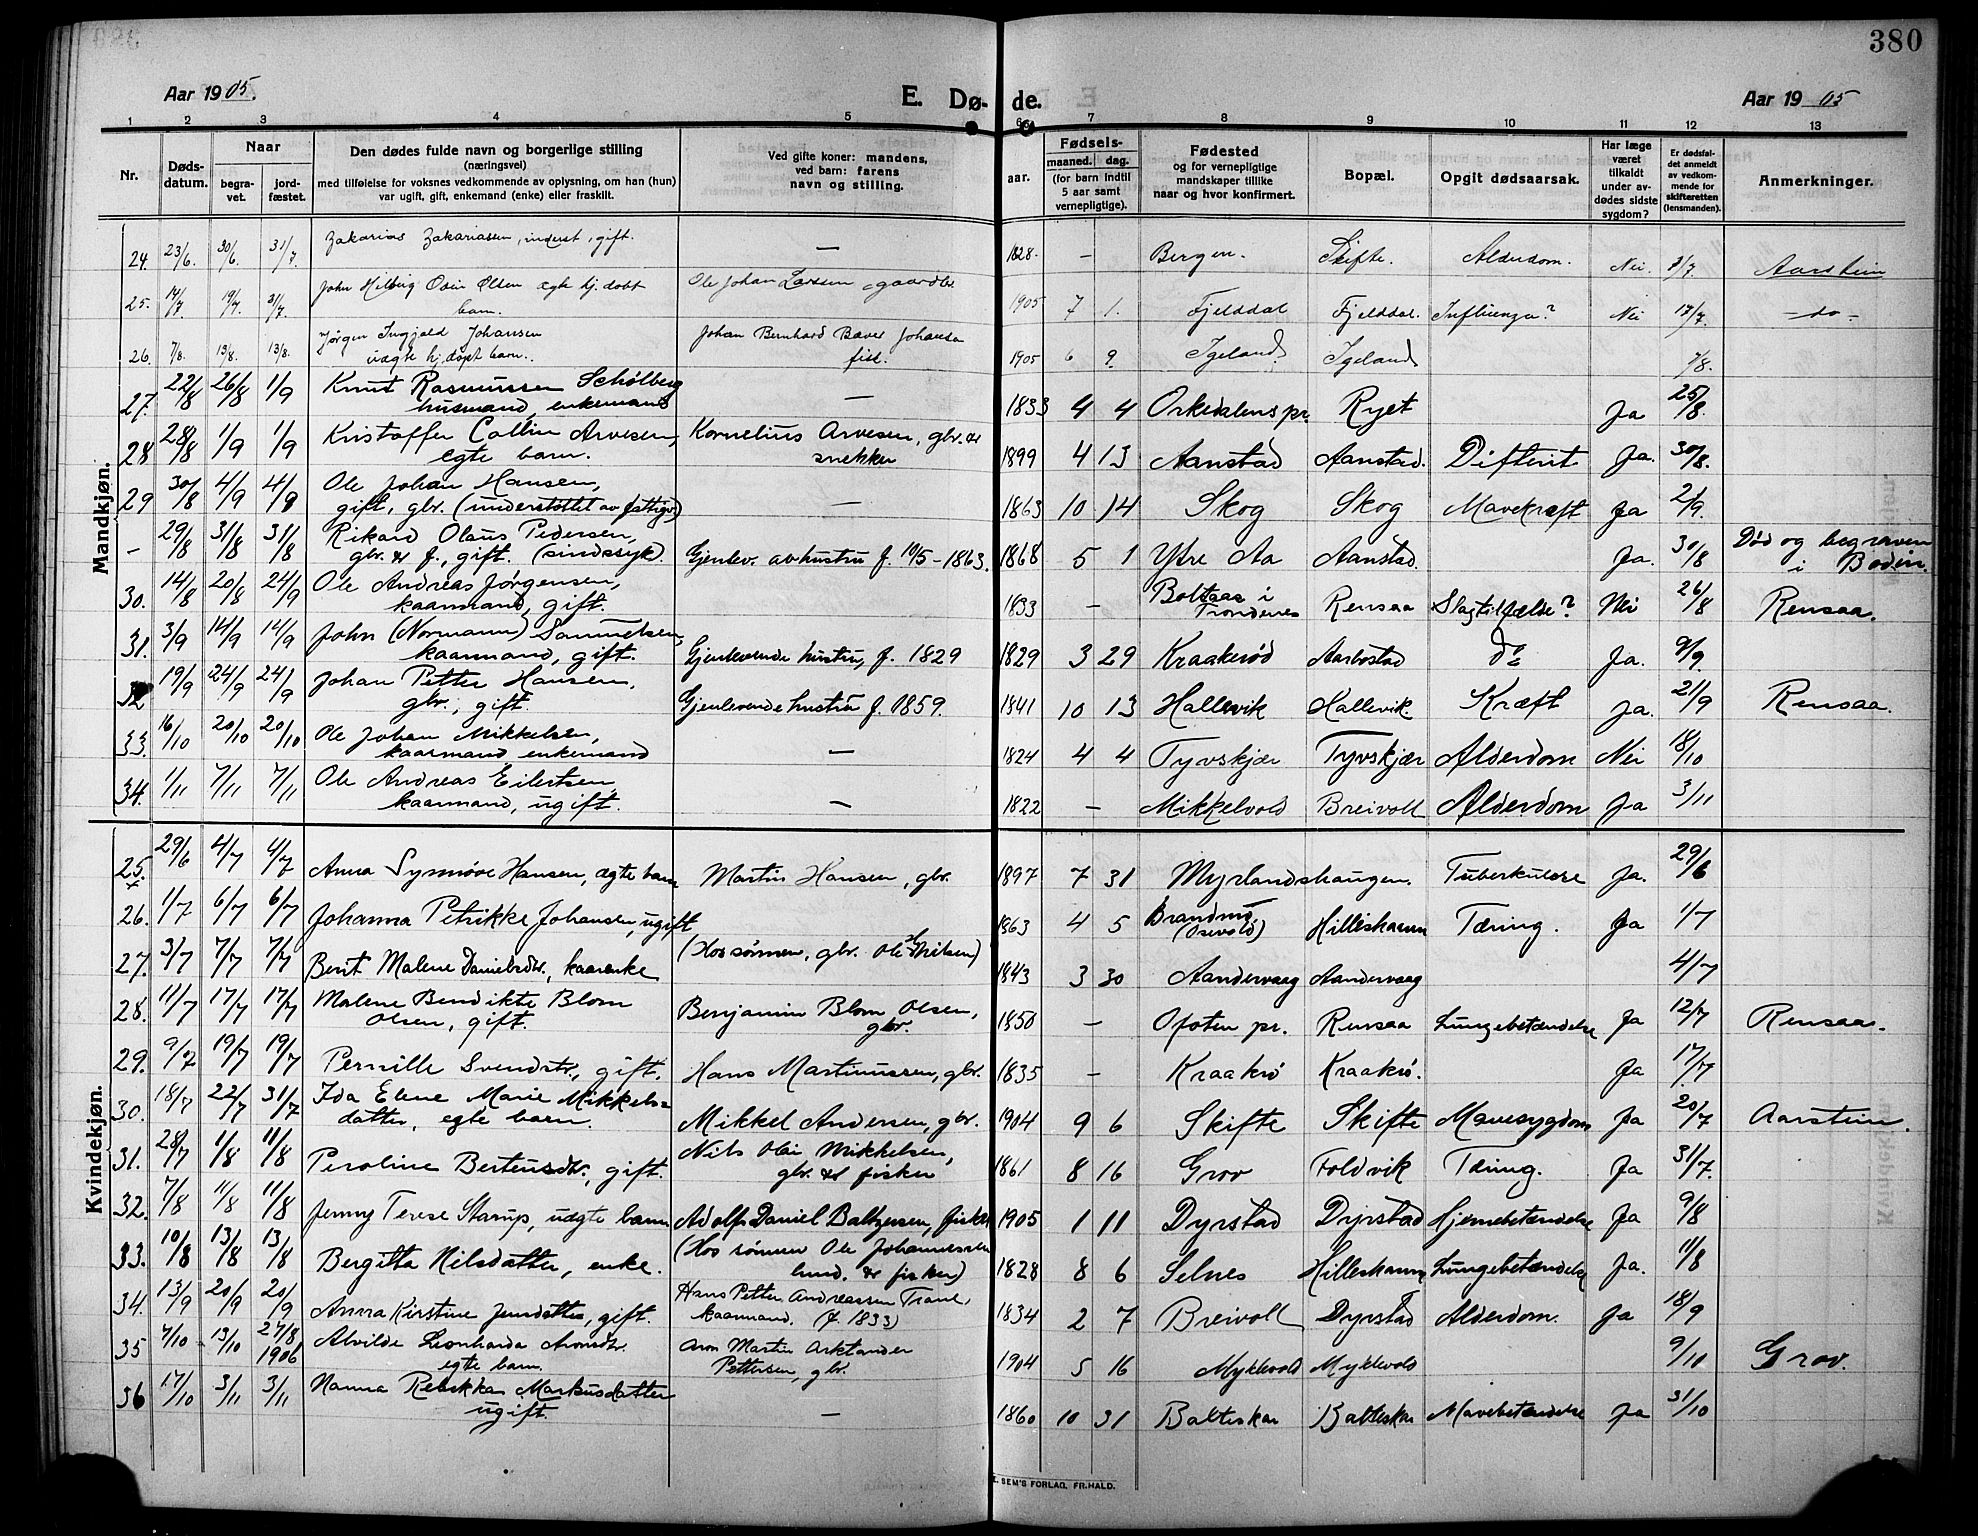 380
Aar 1905.
E. Dø-
de.
Aar 1905
1 2 3 4 5 6 7 8 9 10 11 12 13
Nr.
Døds-
datum.
Naar
begra-
vet.
jord-
fæstet.
Den dødes fulde navn og borgerlige stilling
(næringsvei)
med tilføielse for voksnes vedkommende av oplysning, om han (hun)
var ugift, gift, enkemand (enke) eller fraskilt.
Ved gifte koner: mandens,
ved barn: farens
navn og stilling.
Fødsels-
aar.
maaned. dag.
(for barn indtil
5 aar samt
vernepligtige).
Fødested
og for vernepligtige
mandskaper tillike
naar og hvor konfirmert.
Bopæl.
Opgit dødsaarsak.
Har læge
været
tilkaldt
under av-
dødes sidste
sygdom?
Er dødsfal-
det anmeldt
av vedkom-
mende for
skifteretten
(lensmanden).
Anmerkninger.
Mandkjøn.
24. 23/6. 30/6. 31/7. Zakarias Zakariassen, inderst, gift. — 1828. — Bergen. Skifte. Alderdom. Nei. 7/7. Aarstein
25. 14/7. 19/7. 31/7. John Hilberg Olsen ægte hj. døbt Ole Johan Larsen gaardbr 1905 7 1. Fjelddal Fjelddal. Influenza? Nei 17/7. —do—
barn.
26. 7/8. 13/8. 13/8. Jørgen Ingjald Johansen Johan Bernhard Baver Johansen 1905 6 9. Igeland Igeland 7/8.
uægte hj. døpt barn. fisk.
27. 22/8 26/8 1/9 Knut Rasmussen Schølberg — 1833 4 4 Orkedalens pr. Ryet Ja 25/8.
husmand, enkemand
28 28/8 1/9 1/9 Kristoffer Collin Arvesen, Kornelius Arvesen, gbr. & 1899 4 13 Aanstad Aanstad. Difterit Ja. 30/8.
egte barn. snekker
29 30/8 4/9 4/9 Ole Johan Hansen, — 1863 10 14 Skog Skog Mavekræft Ja 2/9.
gift, gbr. (understøttet av fattigv)
— 29/8 31/8 31/8 Rikard Olaus Pedersen, 1868 5 1 Ytre Aa Aanstad. Ja. 30/8 Død og begraven
gbr. & f., gift. (sindssyk). Gjenlev. av hustru f. 10/5-1863. i Bodin.
30. 14/8 20/8 24/9 Ole Andreas Jørgensen, 1833 — Boltaas i Rensaa Slagtilfælde? Nei 26/8 Rensaa.
kaarmand, gift. Trondenes
31. 3/9 14/9 14/9 John (Normann) Samuelsen, Gjenlevende hustru, f. 1829 1829 3 29 Kraakerød Aarbostad do Ja. 9/9
kaarmand, gift.
32 19/9 24/9 24/9 Johan Petter Hansen, Gjenlevende hustru f. 1859. 1841 10 13 Hallevik Hallevik. Kræft Ja. 21/9 Rensaa.
gbr., gift.
33. 16/10 20/10 20/10 Ole Johan Mikkelsen, — 1824 4 4 Tyvskjær Tyvskjær Alderdom Nei 18/10
kaarmand enkemand
34. 1/11 7/11 7/11 Ole Andreas Eilertsen, — 1822 — Mikkelvold Breivoll Alderdom Ja 3/11
kaarmand, ugift.
Kvindekjøn.
25. 29/6 4/7 4/7 Anna Synnøve Hansen, ægte barn Martin Hansen, gbr. 1897 7 31 Myrlandshaugen. Tuberkulose Ja. 29/6
26. 1/7 6/7 6/7 Johanna Petrikke Johansen, ugift 1863 4 5 Brandmo Hilleshamn Tæring. Ja 1/7
(Osevold)
27. 3/7 7/7 7/7 Berit Malene Danielsdtr., kaarenke (Hos sønnen, gbr. Ole Nilsen) 1843 3 30 Aandervaag Aandervaag 4/7
28. 11/7 17/7 17/7 Malene Bendikte Blom Benjamin Blom Olsen, 1850 — Ofoten pr. Rensaa Lungebetændelse Ja 12/7 Rensaa.
Olsen, gift. gbr.
29. 9/7 19/7 19/7 Pernille Svendsdtr., gift. Hans Martinussen, gbr. 1835 — Kraakrø Kraakrø. Ja 17/7
30. 18/7 22/7 31/7 Ida Elene Marie Mikkels- Mikkel Andersen, gbr. 1904 9 6 Skifte Skifte Mavesygdom Ja 20/7 Aarstein.
datter, egte barn.
31. 28/7 1/8 11/8 Peroline Bertensdtr., gift. Nils Olai Mikkelsen, 1861 8 16 Grov Foldvik Tæring. Ja 31/7.
gbr. & fisker
32. 7/8 11/8 11/8 Jenny Terese Starup, uægte barn Adolf Daniel Baltzersen, fisker 1905 1 11 Dyrstad Dyrstad Hjernebetændelse Ja 9/8
33. 10/8 13/8 13/8 Bergitta Nilsdatter, enke. (Hos sønnen Ole Johannessen 1828 8 6 Selnes Hilleshamn Lungebetændelse Ja. 11/8
lund. & fisker)
34. 13/9 20/9 20/9 Anna Kirstine Jensdatter, gift. Hans Petter Andreassen Trane, 1834 2 7 Breivoll Dyrstad Alderdom. Ja 18/9
kaarmand. (f. 1833)
35 7/10 13/10 27/8 1906 Alvilde Leonharda Aronsdtr. Aron Martin Arktander 1904 5 16 Myklevold Myklevold 9/10 Grov.
egte barn. Pettersen, gbr.
36 17/10 3/11 3/11 Nanna Rebekka Markusdatter — 1860 10 31 Balteskar Balteskar Mavebetændelse Ja 31/10
ugift.
E. SEM'S FORLAG, FR.HALD.